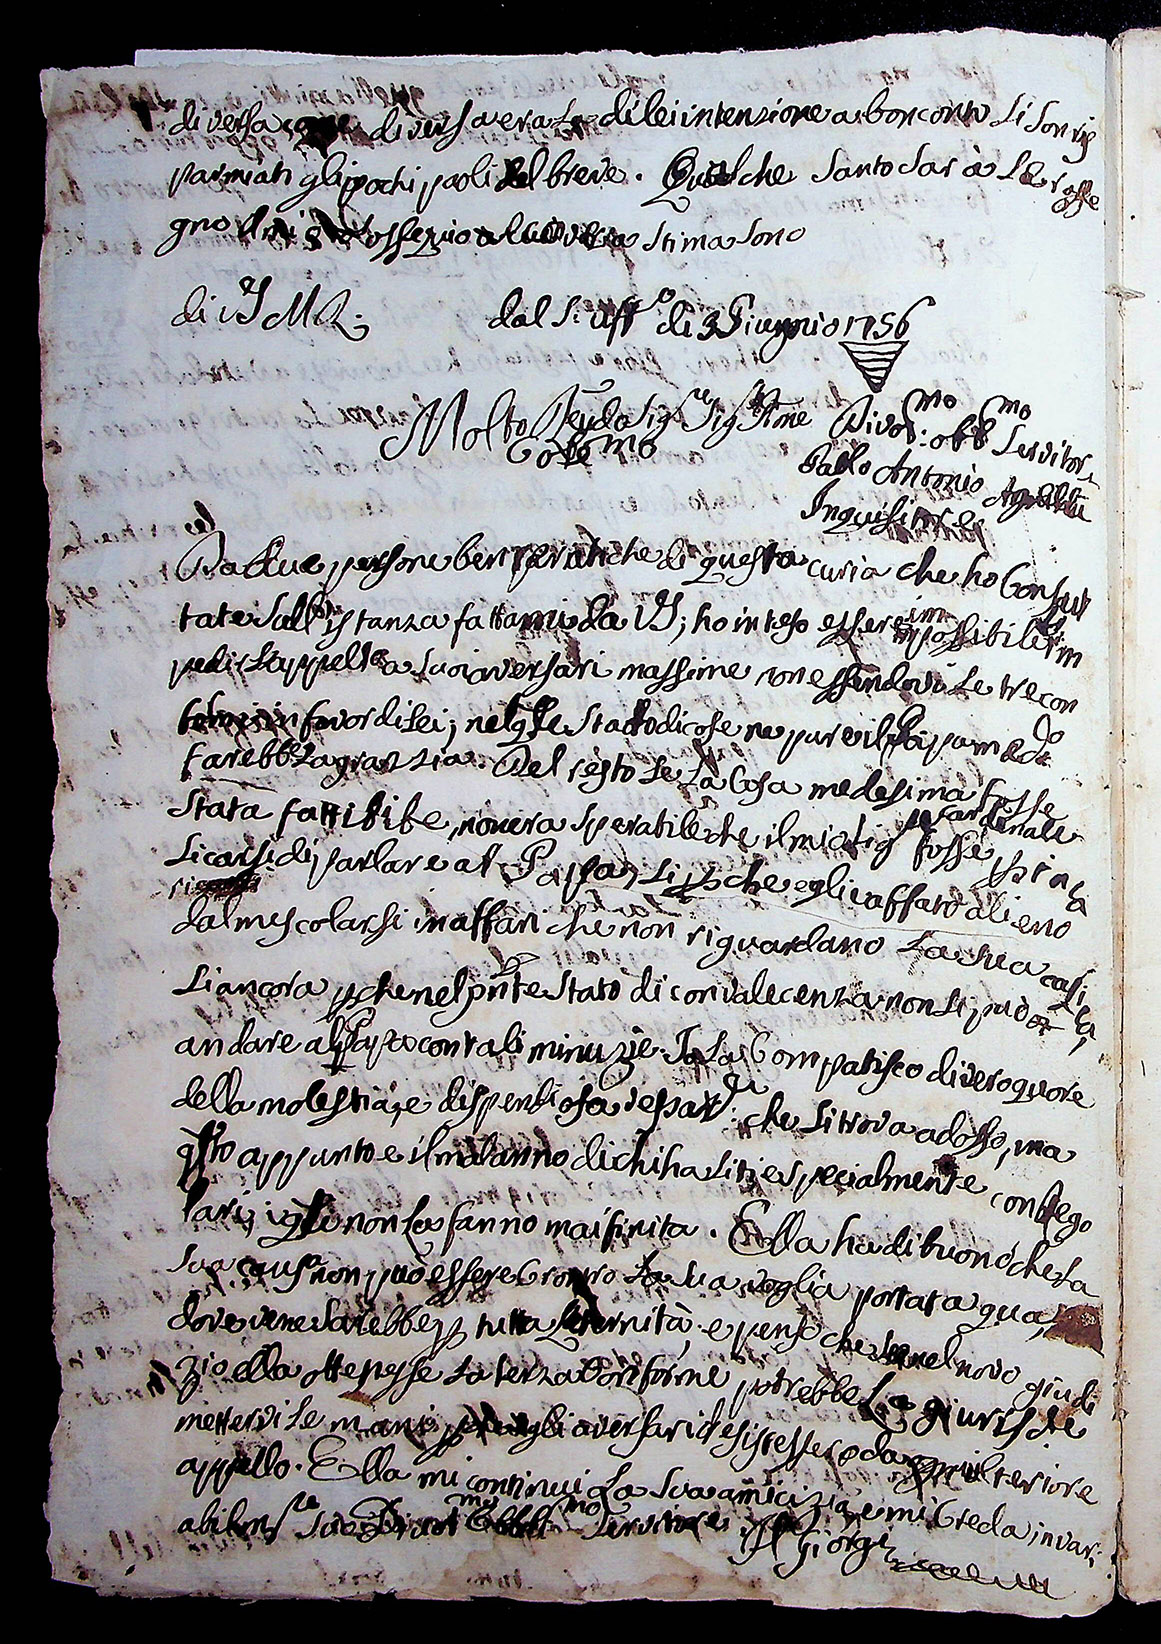 diversa come diversa era la di lei intenzione a bon conto li son ris
parmiati gli pochi paoli del breve. Qualche Santo sarà Le rasse
gno ossequio stima sono
di VS M R. dal S: Uff.o di 3 Giugnio 1756
Molto Revdo Sig.re Sig Prone Divot.mo: obb.mo Servitore
Colmo
Paolo Antonio
Inquisitore
Da due persone ben pratiche di questa curia che ho Consul
tate sull'istanza fattami da VS; ho inteso essere impossibile im
pedir l'appello a suoi aversari massime non essendovi le tre con
formi in favor di lei; nel qle stato di cose ne pure il Papa medo
farebbe la grazia. Del resto se la Cosa medesima fosse
stata fattibile, non era sperabile che il mio Sig Cardinale
fosse
si carsi di parlare al Papa, si pche egli è affatto alieno
dal mescolarsi in affari che non riguardano la sua casa,
si ancora pche nel pnte stato di convalecenza non si può
andare al Papa con tali minuzie. Io La Compatisco di vero quore
della molestia, e dispendiosa vessaz.: che si trova adosso, ma
qsto appunto e il malanno di chi ha liti e specialmente con Rego
lari, i qli non la fanno mai finita. Ella ha di buono che la
sua causa non può essere Contro la sua voglia portata qua,
dove vene sarebbe p tutta l'eternità. e penso che se nel novo giudi
zio ella ottenesse la terza conforme potrebbe la giuriste
mettervi le mani gli aversari desistessero da ulteriore
appello. Ella mi continui la sua amicizia, e mi Creda invari
abilm.te Suo Divot.mo Obbl.mo Servitore
Giorgi